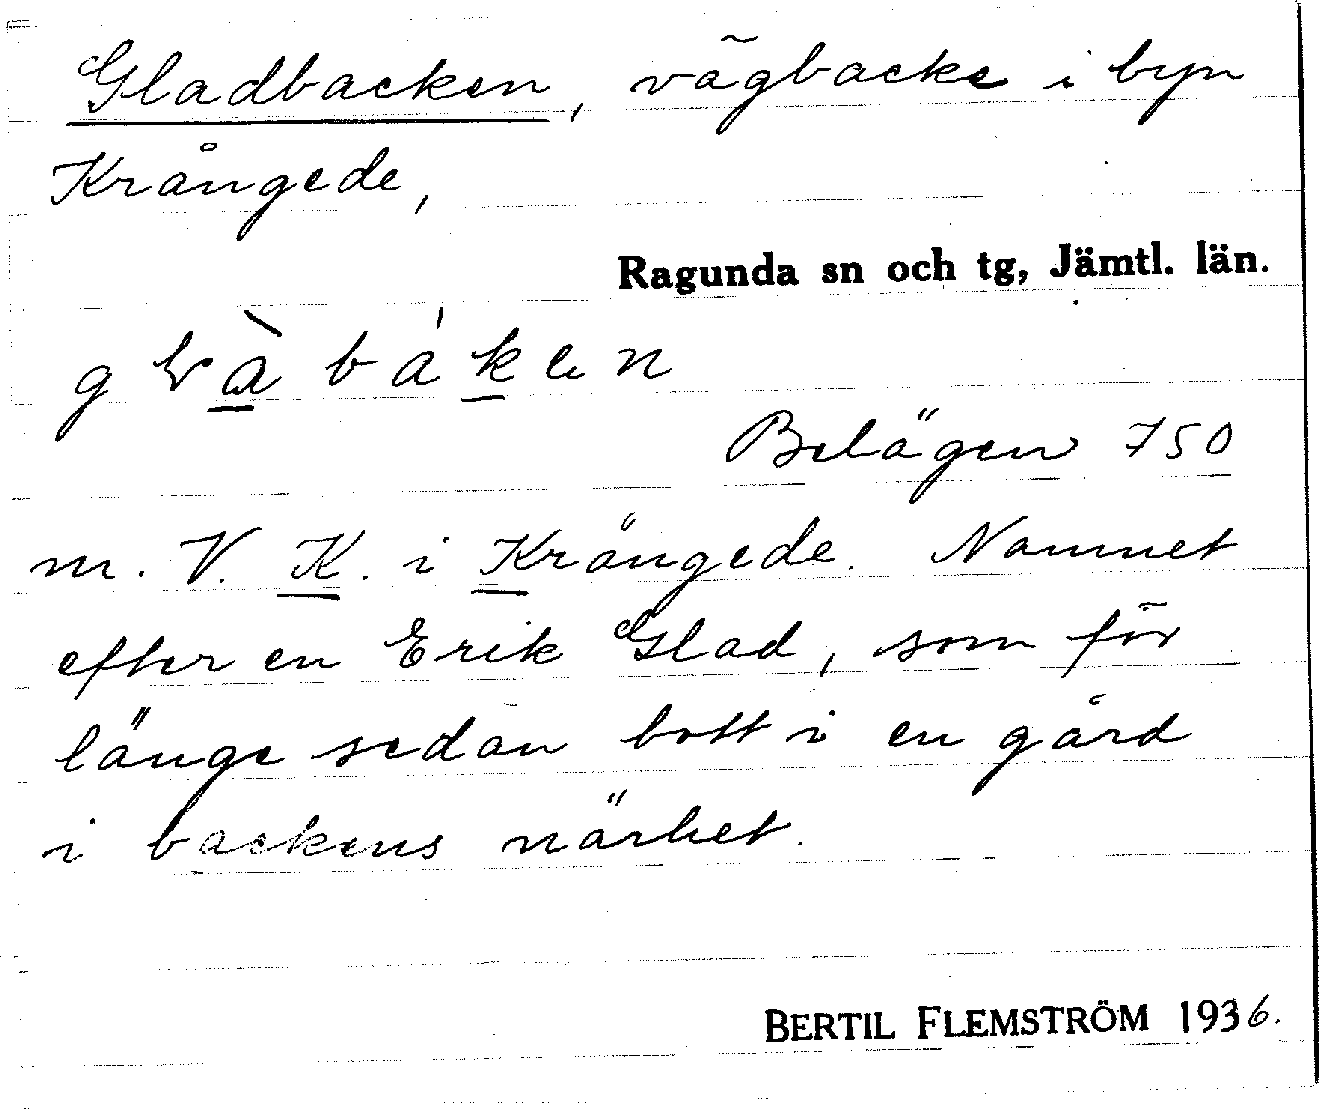 Gladbacken, vägbacke i byn
Krångede,
Ragunda sn och tg, Jämtl. län.
Belägen 750
m. V. K. i Krångede. Namnet
efter en Erik Glad, som för
länge sedan bott i en gård
i backens närhet.
BERTIL FLEMSTRÖM 1936.